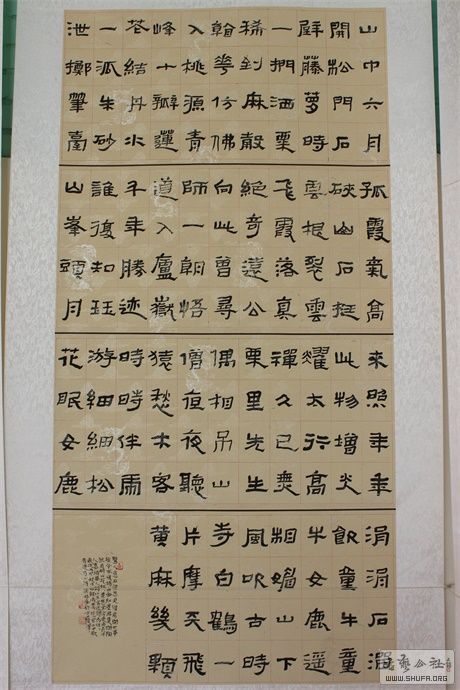 山中六月
開松門石
壁藤蘿時
一捫洒栗
稀到麻殽
翰華仿佛
入桃源青
峰十瓣蓮
花結丹水
一泓朱砂
泄擲筆臺
孤霞氣高
硤山石挺
雲根裂雲
飛霞落真
絕奇遠公
向此曾尋
師一朗悟
道入廬嶽
千年勝迹
誰復知珏
山峯頭月
來照年年
此物增炎
耀太行高
禪久已無
栗里先生
偶相吊山
僧夜夜聽
猿愁木客
時時伴雨
游細細松
花眠女鹿
涓涓石澗
飲童牛童
牛女鹿遥
相嬲山下
風吹古時
寺白鶴一
片摩天飛
黄麻幾顆
WWW.SHUFA.ORG